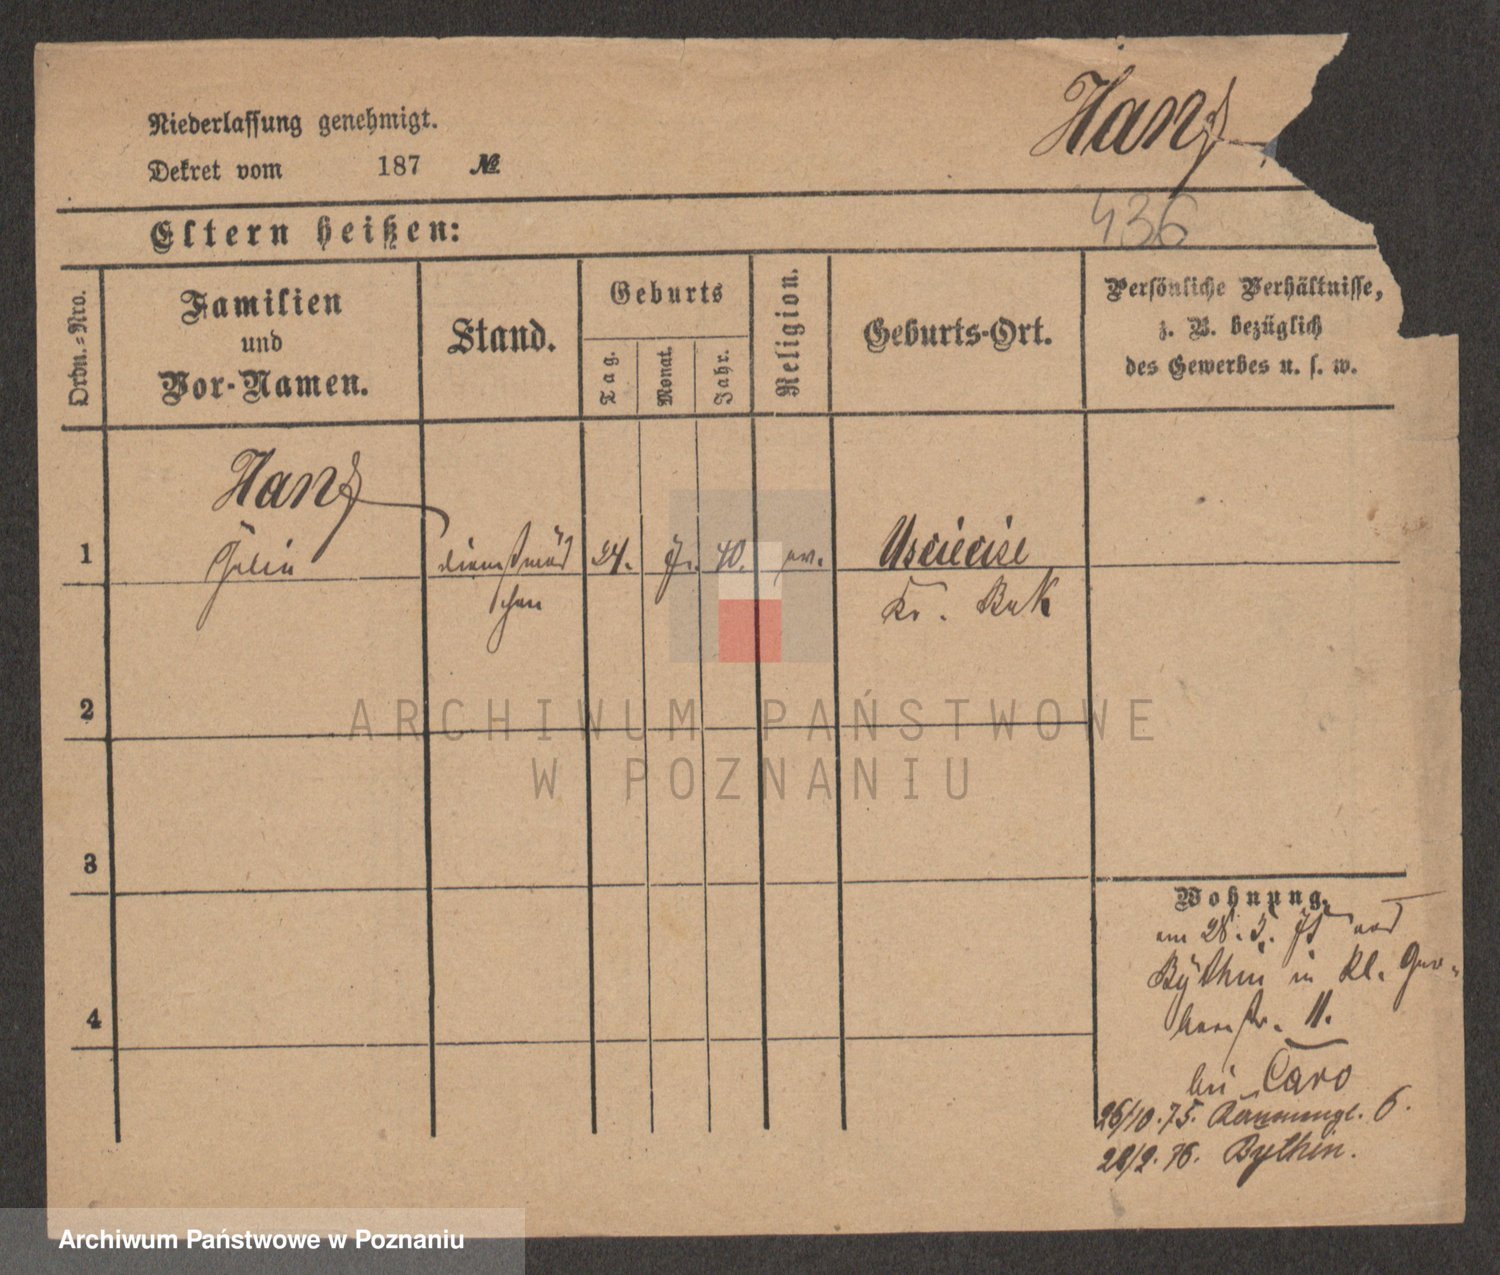 Niederlassung genehmigt.
Dekret vom 187 №
Hanf
436
Eltern heißen:
Ordn.-Nro.
Familien und Vor-Namen.
Stand.
Geburts
Tag.
Monat.
Jahr.
Religion.
Geburts-Ort.
Persönliche Verhältnisse,
z. B. bezüglich
des Gewerbes u. s. w.
Hanf
1 dienstmäd 24. 40. ev. Usciecice
chen Kr. Buk
2
3
4
Wohnung.
am 28. 3. aus
Bythin in kl. Ger-
berstr. 11.
bei Caro
26/10. 75. 6.
28/2. 76. Bythin.
ARCHIWUM PAŃSTWOWE
W POZNANIU
Archiwum Państwowe w Poznaniu